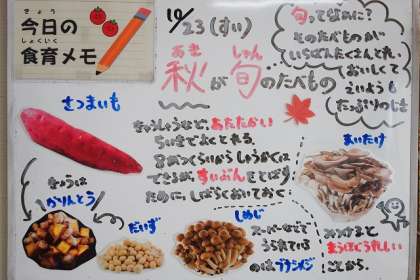 きょう
今日の
しょくいく
食育メモ
10/23(すい)
あき しゅん
秋が旬のたべもの
旬ってなぁに?
そのたべものが
いちばんたくさんとれ、
おいしくて
えいようも
たっぷりのじき
さつまいも
きゅうしゅうなど、あたたかい
ちいきでよくとれる。
8がつくらいからしゅうかくは
できるが、すいぶんをとばす
ために、しばらくおいておく。
きょうは
かりんとう
だいず
しめじ
スーパーなどで
うられている
のは、ブナシメジ
まいたけ
みつけると
まうほどうれしい
ことから。